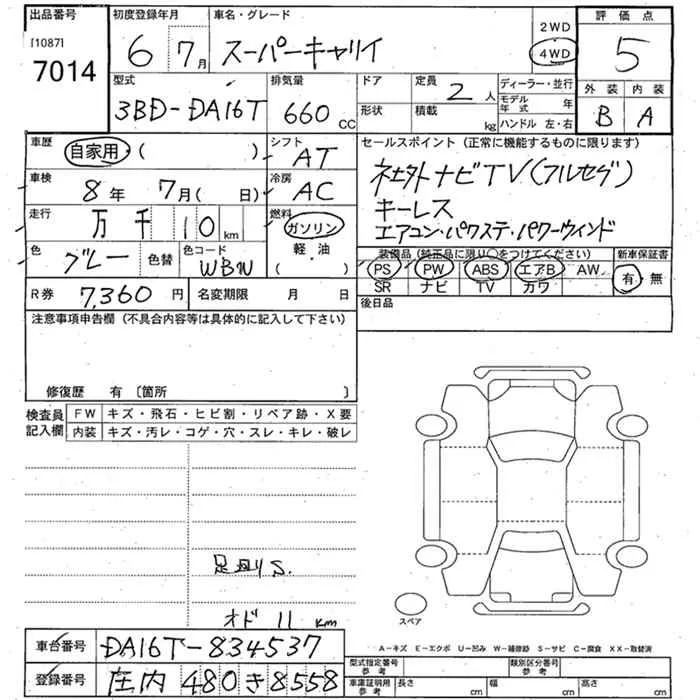 出品番号 初度登録年月 車名・グレード 2WD 評価点
[1087] 6 7月 スーパーキャリイ 4WD 5
7014
型式 排気量 ドア 定員 2人 ディーラー・並行 外装 内装
3BD-DA16T 660CC 形状 積載 kg モデル年式 年 B A
ハンドル 左・右
車歴 自家用・( ) シフト AT セールスポイント(正常に機能するものに限ります)
車検 8年 7月( 日) 冷房 AC 社外ナビTV(フルセグ)
走行 万千10km 燃料 ガソリン 軽・油 ( ) キーレス
エアコン・パワステ・パワーウィンド
色 グレー 色替 色コード WBW 装備品(純正品に限り○をつけてください) 新車保証書
PS PW ABS エアB AW 有・無
SR ナビ TV カワ
R券 7,360円 名変期限 月 日 後日品
注意事項申告欄(不具合内容等は具体的に記入して下さい)
修復歴 有〔箇所 〕
検査員記入欄 FW キズ・飛石・ヒビ割・リペア跡・X要
内装 キズ・汚レ・コゲ・穴・スレ・キレ・破レ
足廻りS.
オド 11 km
スペア
車台番号 DA16T-834537
A-キズ E-エクボ U-凹み W-補修跡 S-サビ C-腐食 XX-取替済
登録番号 庄内 480 き 8558
型式指定番号 参考 類別区分番号 参考
車庫証明用 参考 長さ cm 幅 cm 高さ cm